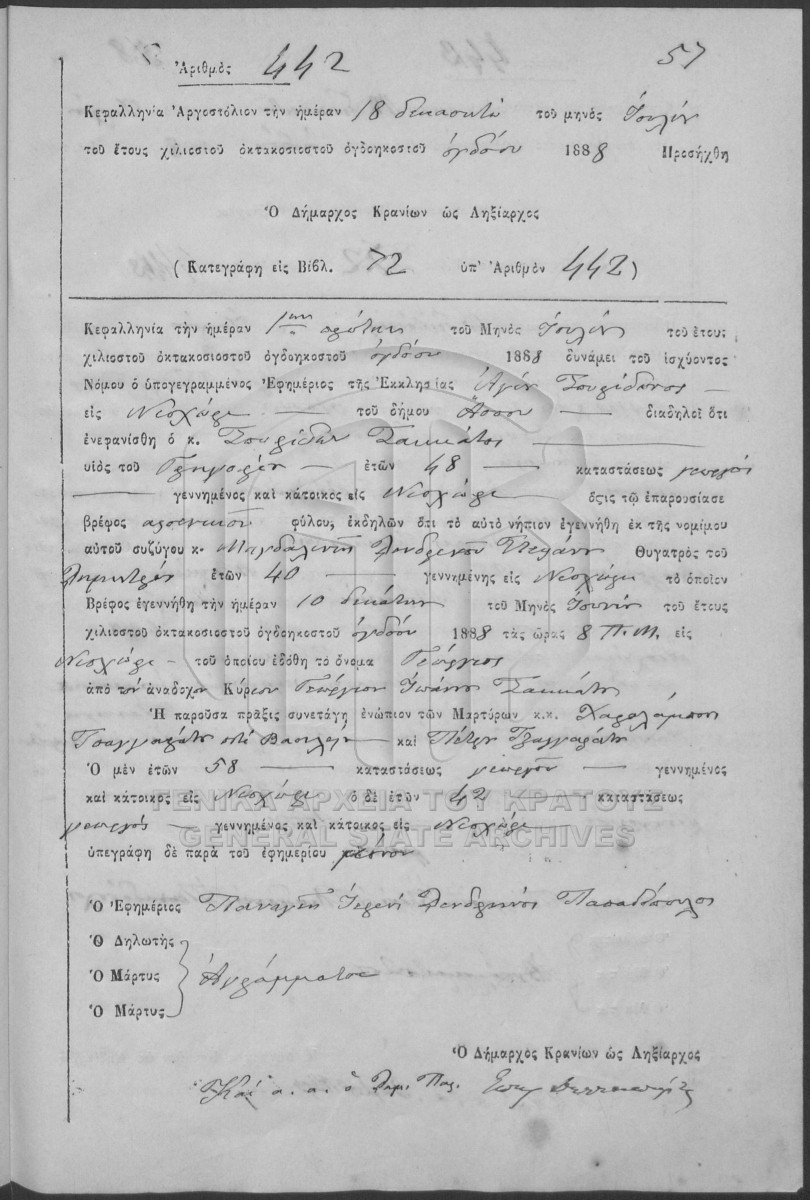 Ἀριθμὸς 442 57
Κεφαλληνία Ἀργοστόλιον τὴν ἡμέραν 18 δεκαοκτὼ τοῦ μηνὸς Ἰουλίου
τοῦ ἔτους χιλιοστοῦ ὀκτακοσιοστοῦ ὀγδοηκοστοῦ ὀγδόου 1888 Προσήχθη
Ὁ Δήμαρχος Κρανίων ὡς Ληξίαρχος
(Κατεγράφη εἰς Βιβλ. 72 ὑπ' Ἀριθμὸν 442)
Κεφαλληνία τὴν ἡμέραν 1ην πρώτην τοῦ Μηνὸς Ἰουλίου τοῦ ἔτους
χιλιοστοῦ ὀκτακοσιοστοῦ ὀγδοηκοστοῦ ὀγδόου 1888 δυνάμει τοῦ ἰσχύοντος
Νόμου ὁ ὑπογεγραμμένος Ἐφημέριος τῆς Ἐκκλησίας Ἁγίου Σπυρίδωνος
εἰς Νεοχώρι τοῦ δήμου Ἄσσου διαδηλοῖ ὅτι
ἐνεφανίσθη ὁ κ. Σπυρίδων Σακκάτος
υἱὸς τοῦ Γρηγορίου ἐτῶν 48 καταστάσεως γεωργὸς
γεννημένος καὶ κάτοικος εἰς Νεοχώρι ὅςτις τῷ ἐπαρουσίασε
βρέφος ἀρσενικοῦ φύλου, ἐκδηλῶν ὅτι τὸ αὐτὸ νήπιον ἐγεννήθη ἐκ τῆς νομίμου
αὐτοῦ συζύγου κ. Μαγδαληνῆς Δενδρινοῦ Θυγατρὸς τοῦ
Δημητρίου ἐτῶν 40 γεννημένης εἰς Νεοχώρι τὸ ὁποῖον
Βρέφος ἐγεννήθη τὴν ἡμέραν 10 δεκάτην τοῦ Μηνὸς Ἰουνίου τοῦ ἔτους
χιλιοστοῦ ὀκτακοσιοστοῦ ὀγδοηκοστοῦ ὀγδόου 1888 τὰς ὥρας 8 Π.Μ. εἰς
Νεοχώρι τοῦ ὁποίου ἐδόθη τὸ ὄνομα Γεώργιος
ἀπὸ τὸν ἀνάδοχον Κύριον Γεώργιον Ἰωάννου Σακκάτου
Ἡ παροῦσα πρᾶξις συνετάγη ἐνώπιον τῶν Μαρτύρων κ.κ. Χαραλάμπους
Τσαγγαράτου ποτὲ Βασιλείου καὶ Πέτρου Τζαγγαράτου
Ὁ μὲν ἐτῶν 58 καταστάσεως γεωργοῦ γεννημένος
καὶ κάτοικος εἰς Νεοχώρι ὁ δὲ ἐτῶν 42 καταστάσεως
γεωργὸς γεννημένος καὶ κάτοικος εἰς Νεοχώρι
ὑπεγράφη δὲ παρὰ τοῦ ἐφημερίου μόνον
Ὁ Ἐφημέριος Παναγῆς Ἱερεὺς Δενδρινὸς Παπαδόπουλος
Ὁ Δηλωτὴς
Ὁ Μάρτυς Ἀγράμματοι
Ὁ Μάρτυς
Ὁ Δήμαρχος Κρανίων ὡς Ληξίαρχος
Καὶ α. α. ὁ Δημ. Παρ.
ΓΕΝΙΚΑ ΑΡΧΕΙΑ ΤΟΥ ΚΡΑΤΟΥΣ
GENERAL STATE ARCHIVES